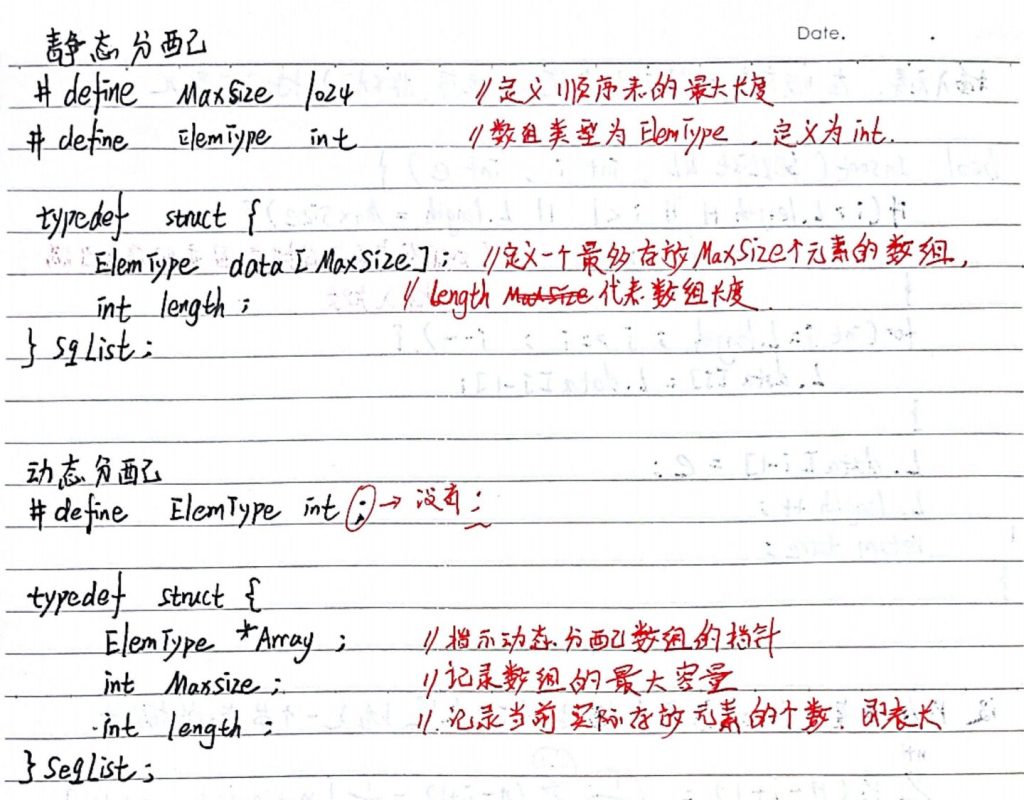 Date.
静态分配
# define MaxSize 1024 //定义顺序表的最大长度
# define ElemType int //数组类型为ElemType，定义为int.
typedef struct {
ElemType data [MaxSize]; //定义一个最多存放MaxSize个元素的数组,
int length ; // length MaxSize 代表数组长度
} SqList ;
动态分配
# define ElemType int ; → 没有 ;
typedef struct {
ElemType *Array ; //指示动态分配数组的指针
int Maxsize ; //记录数组的最大容量
int length ; //记录当前实际存放元素的个数，即表长
} SeqList ;